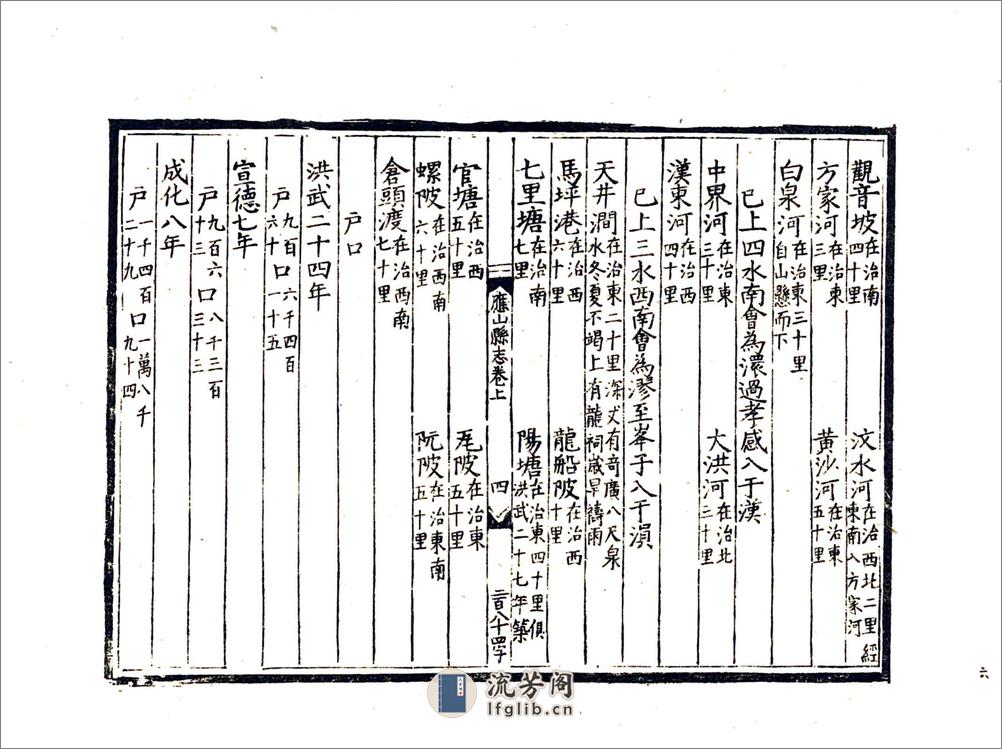 觀音坡在治南四十里 汶水河在治西北二里經東南入方家河
方家河在治東三里 黃沙河在治東五十里
白泉河在治東三十里自山懸而下
已上四水南會為澴過孝感入于漢
中界河在治東三十里 大洪河在治北二十里
漢東河在治西四十里
已上三水西南會為漻至峯子入于溳
天井澗在治東二十里深丈有奇廣八尺泉水冬夏不竭上有龍祠歲旱禱雨
馬坪港在治西六十里 龍船陂在治西十里
七里塘在治南七里 陽塘在治東四十里俱洪武二十七年築
應山縣志卷上 四 二百八十四字
官塘在治西五十里 㞑陂在治東五十里
螺陂在治西南六十里 阮陂在治東南五十里
倉頭渡在治西南七十里
戶口
洪武二十四年
戶九百六十口六千四百一十五
宣德七年
戶九百六十三口八千三百三十三
成化八年
戶一千四百二十九口一萬八千九十四
六
流芳阁
lfglib.cn